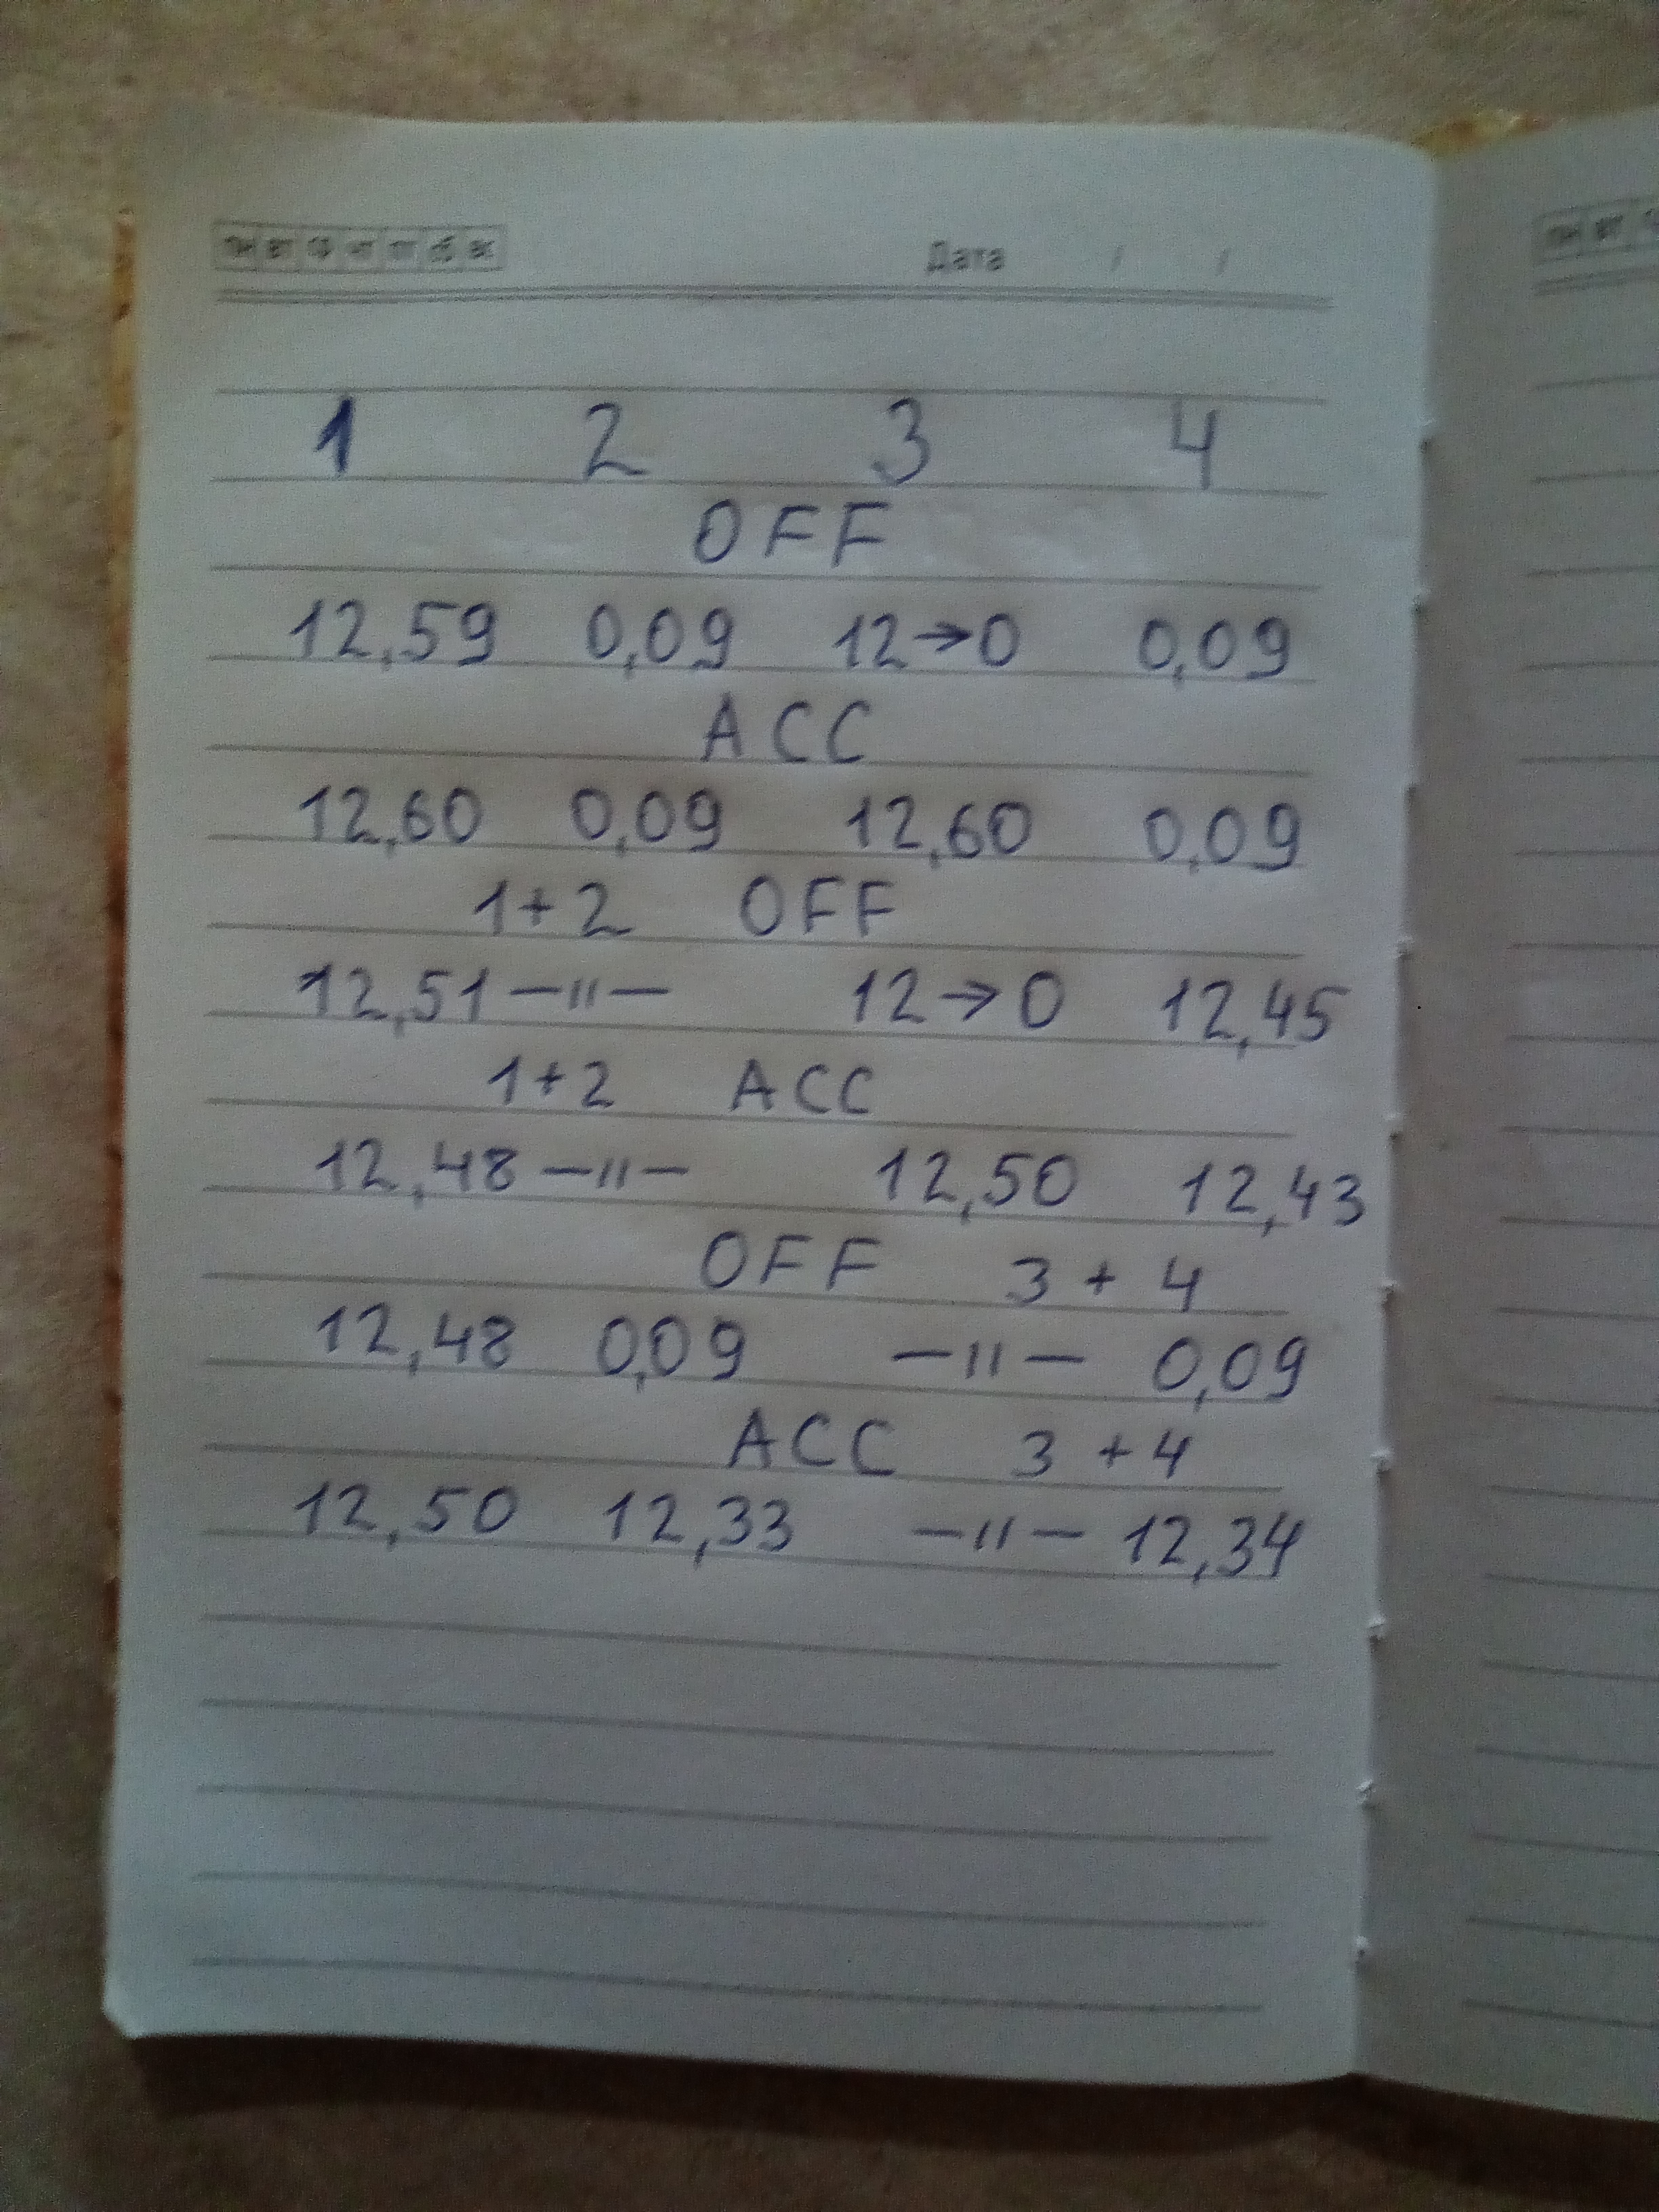 пн вт ср чт пт сб вс Дата / /
1 2 3 4
OFF
12,59 0,09 12→0 0,09
ACC
12,60 0,09 12,60 0,09
1+2 OFF
12,51 —//— 12→0 12,45
1+2 ACC
12,48 —//— 12,50 12,43
OFF 3 + 4
12,48 0,09 —//— 0,09
ACC 3 + 4
12,50 12,33 —//— 12,34
пн вт